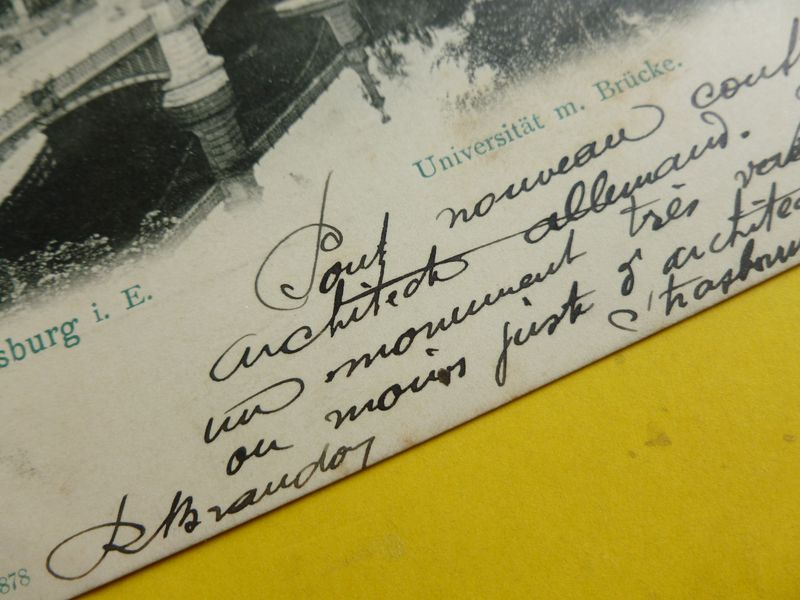 Universität m. Brücke.
sburg i. E.
Pont nouveau cont
architecte allemand.
un monument très
ou moins juste d'archite
Strasbour
878